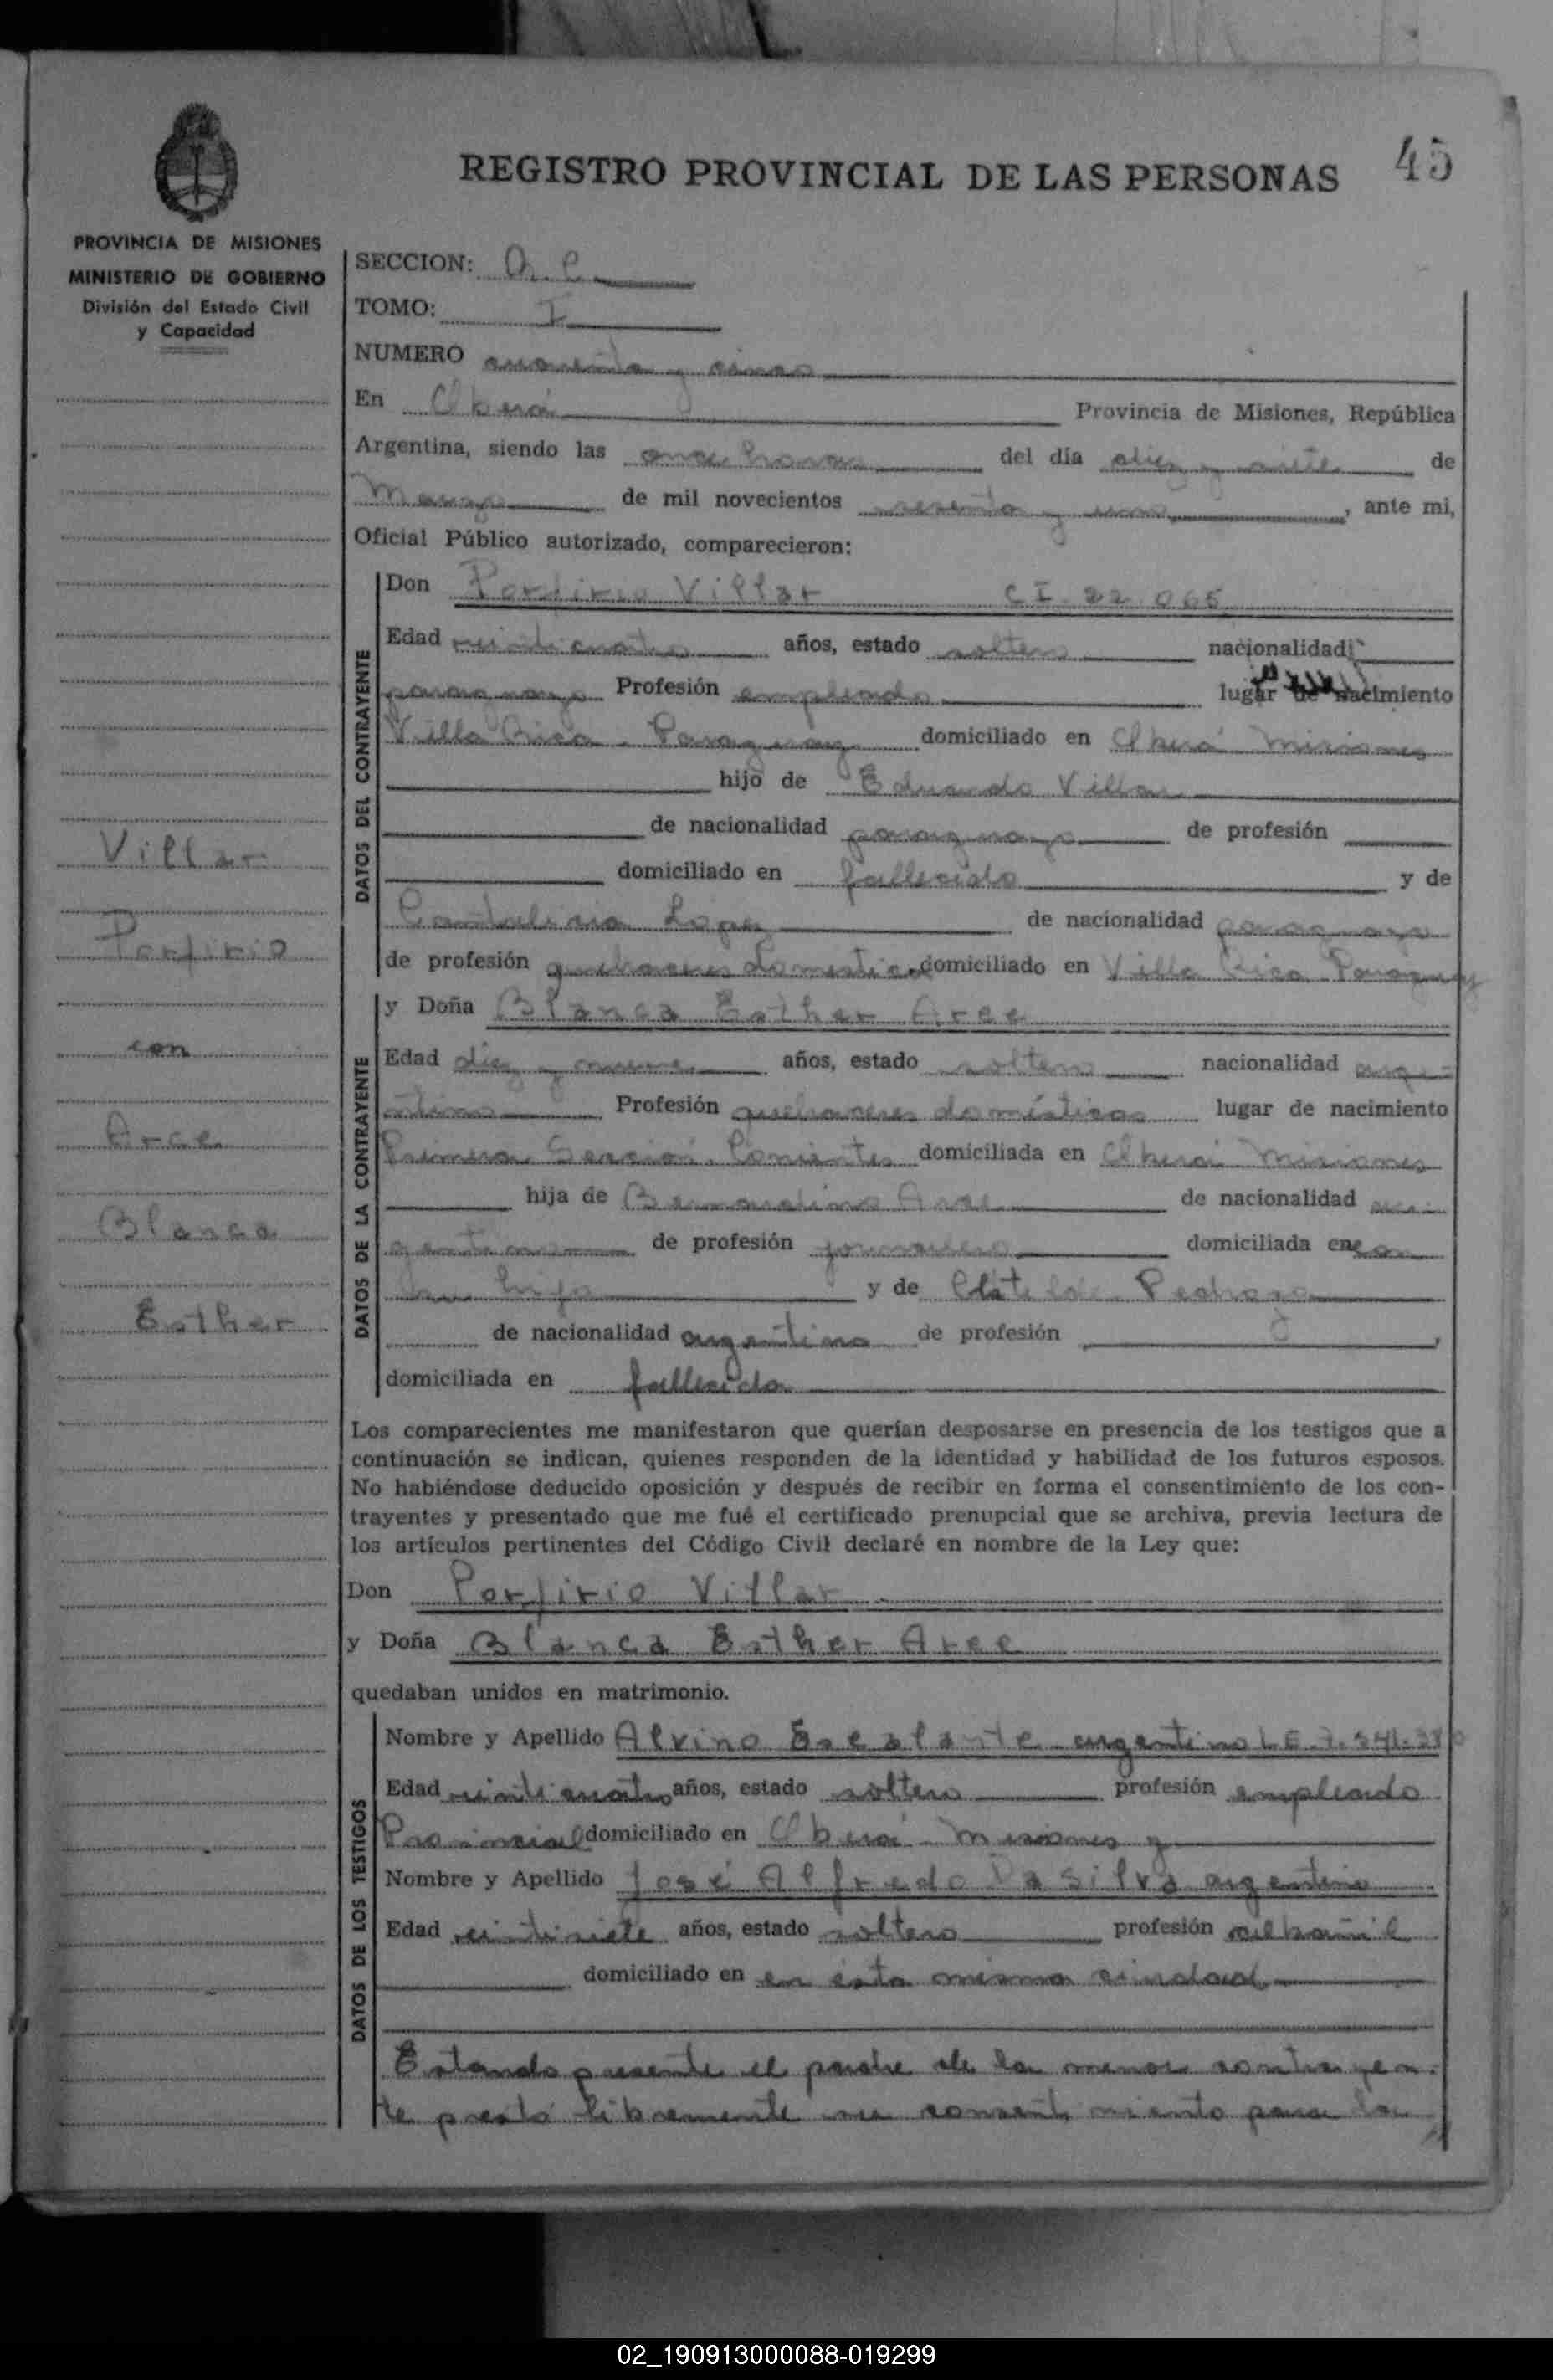 45
REGISTRO PROVINCIAL DE LAS PERSONAS
PROVINCIA DE MISIONES
MINISTERIO DE GOBIERNO
División del Estado Civil
y Capacidad
Villar
Porfirio
con
Arce
Blanca
Esther
SECCION:
TOMO: I
NUMERO cuarenta y cinco
En Oberá Provincia de Misiones, República
Argentina, siendo las once horas del día diez y siete de
Marzo de mil novecientos sesenta y uno, ante mi,
Oficial Público autorizado, comparecieron:
DATOS DEL CONTRAYENTE
Don Porfirio Villar CI. 22.065
Edad veinticuatro años, estado soltero nacionalidad
paraguayo Profesión empleado lugar de nacimiento
Villa Rica - Paraguay domiciliado en Oberá Misiones
hijo de Eduardo Villar
de nacionalidad paraguayo de profesión
domiciliado en fallecido y de
Lopez de nacionalidad paraguaya
de profesión quehaceres domesticos domiciliado en Villa Rica Paraguay
DATOS DE LA CONTRAYENTE
y Doña Blanca Esther Arce
Edad diez y nueve años, estado soltera nacionalidad
Profesión quehaceres domésticos lugar de nacimiento
Primera Sección. Corrientes domiciliada en Oberá Misiones
hija de Bernardino Arce de nacionalidad ar-
gentino de profesión jornalero domiciliada en con
su hija y de Clotilde Pedrozo
de nacionalidad argentina de profesión
domiciliada en fallecida
Los comparecientes me manifestaron que querían desposarse en presencia de los testigos que a
continuación se indican, quienes responden de la identidad y habilidad de los futuros esposos.
No habiéndose deducido oposición y después de recibir en forma el consentimiento de los con-
trayentes y presentado que me fué el certificado prenupcial que se archiva, previa lectura de
los artículos pertinentes del Código Civil declaré en nombre de la Ley que:
Don Porfirio Villar
y Doña Blanca Esther Arce
quedaban unidos en matrimonio.
DATOS DE LOS TESTIGOS
Nombre y Apellido Alvino Escalante argentino L.E.
Edad veinticuatro años, estado soltero profesión empleado
Provincial domiciliado en Oberá - Misiones y
Nombre y Apellido José Alfredo Da Silva argentino
Edad veintisiete años, estado soltero profesión albañil
domiciliado en en ésta misma ciudad
Estando presente el padre de la menor contrayen-
te prestó libremente su consentimiento para la
02_190913000088-019299